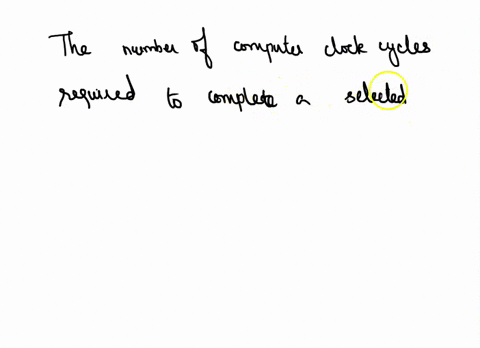 The number of computer clock cycles
required to complete a selected